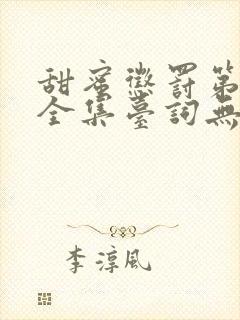 甜蜜懲罰第
全集臺詞無
李淳風